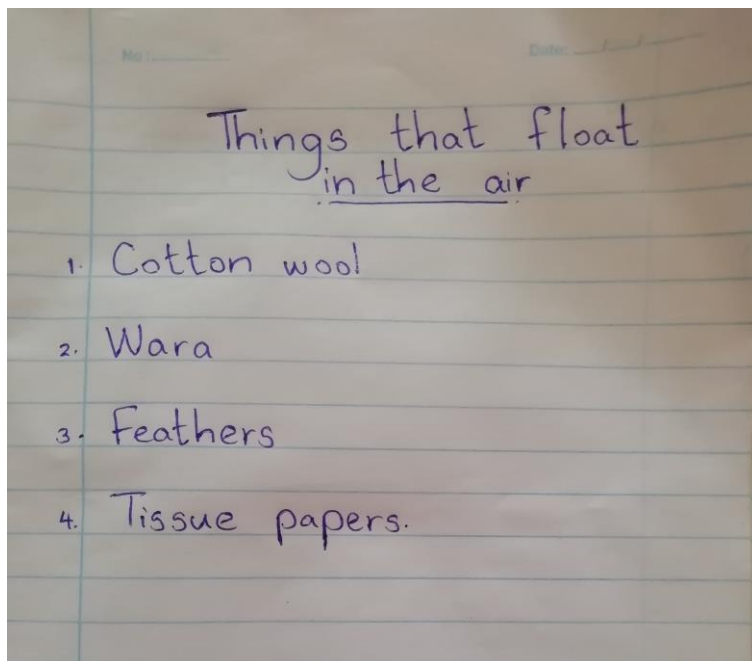 No:
Date: __/__/____
Things that float
in the air
1. Cotton wool
2. Wara
3. Feathers
4. Tissue papers.